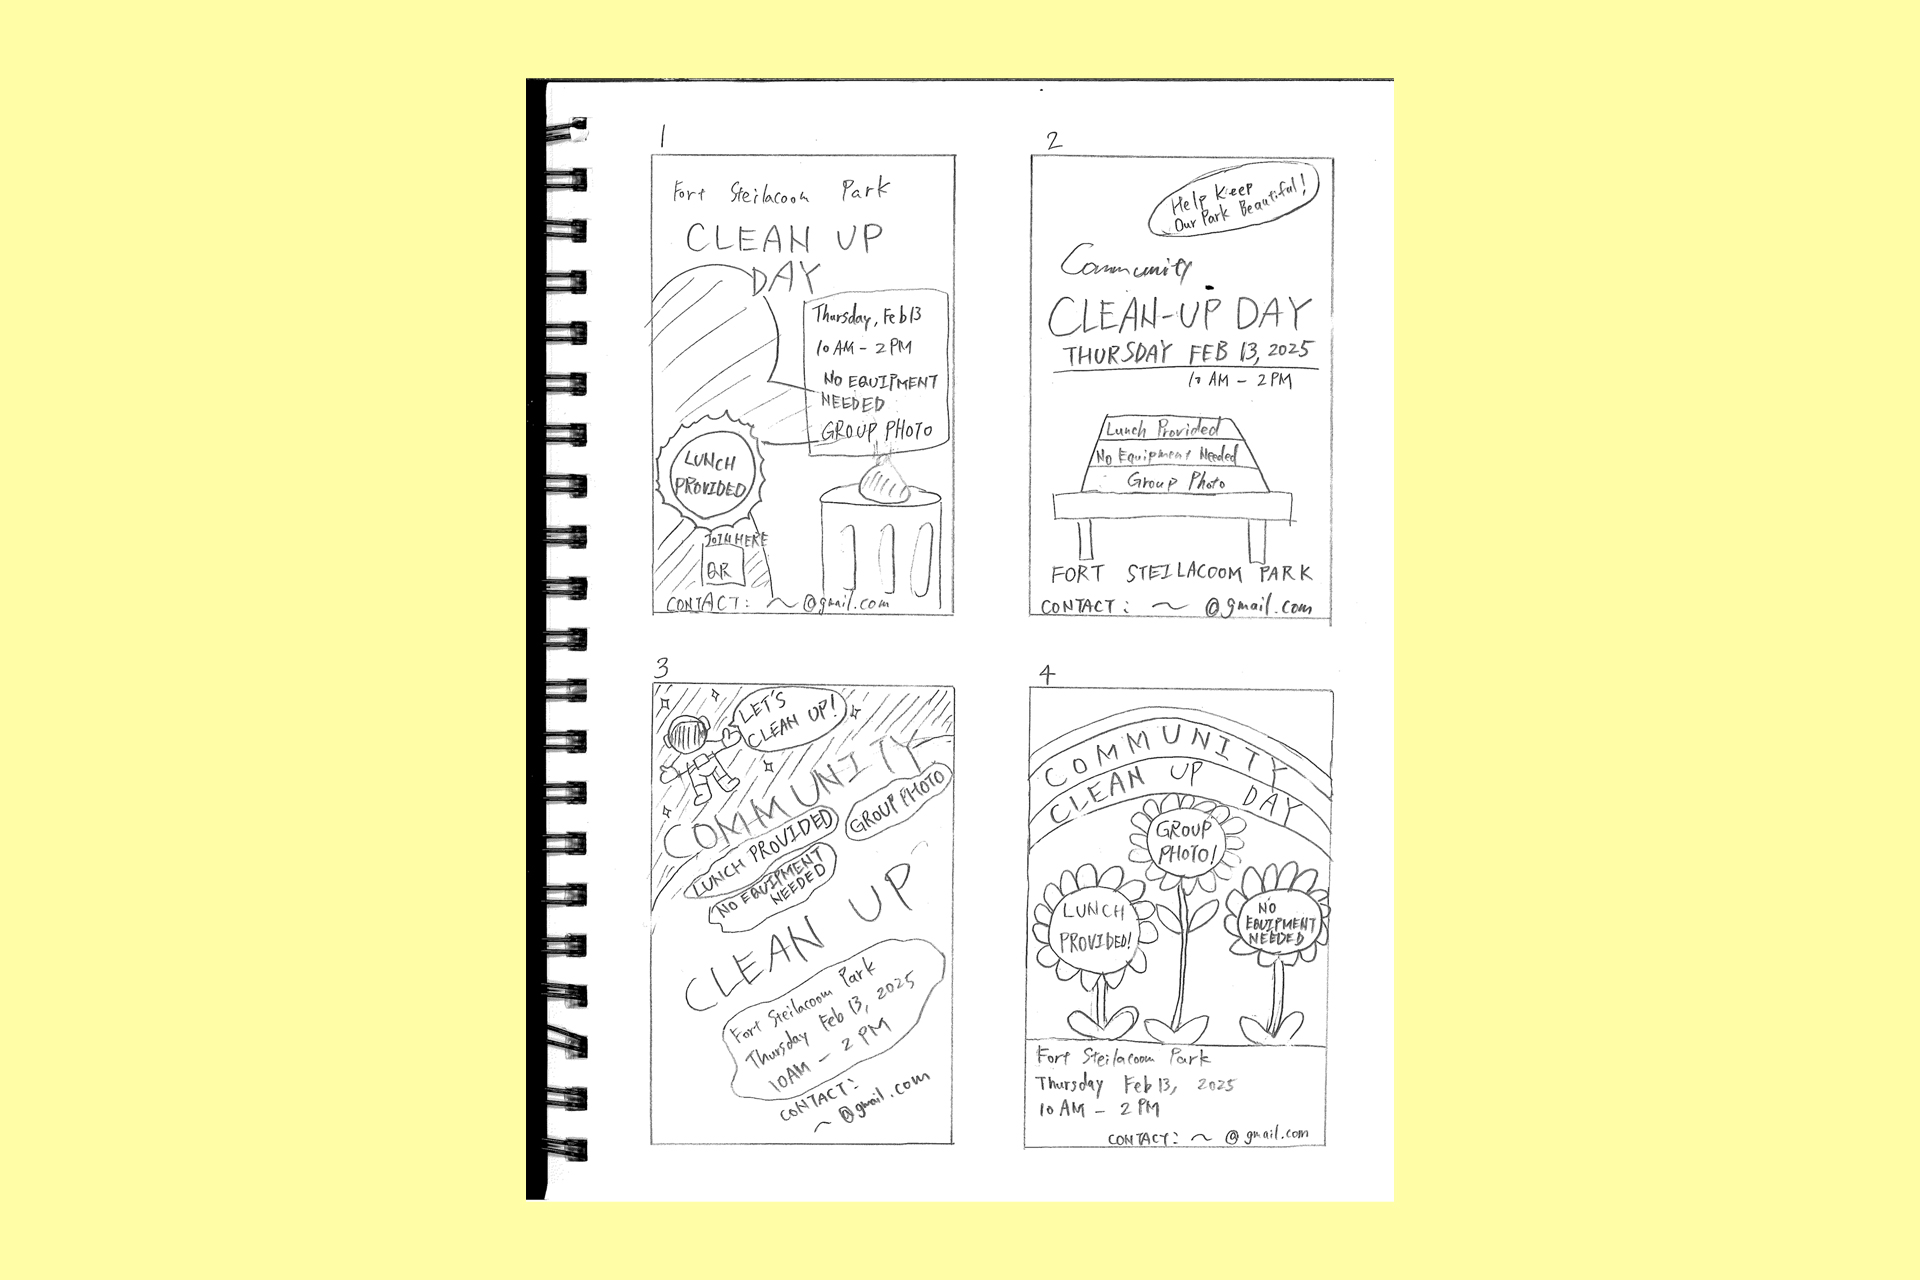 1
Fort Steilacoom Park
CLEAN UP
DAY
Thursday, Feb 13
10 AM - 2 PM
NO EQUIPMENT
NEEDED
GROUP PHOTO
LUNCH
PROVIDED
JOIN HERE
QR
CONTACT: ~ @gmail.com
2
Help Keep
Our Park Beautiful!
Community
CLEAN-UP DAY
THURSDAY FEB 13, 2025
10 AM - 2 PM
Lunch Provided
No Equipment Needed
Group Photo
FORT STEILACOOM PARK
CONTACT: ~ @gmail.com
3
LET'S
CLEAN UP!
COMMUNITY
GROUP PHOTO
LUNCH PROVIDED
NO EQUIPMENT
NEEDED
CLEAN UP
Fort Steilacoom Park
Thursday Feb 13, 2025
10AM - 2 PM
CONTACT:
~ @gmail.com
4
COMMUNITY
CLEAN UP DAY
GROUP
PHOTO!
LUNCH
PROVIDED!
NO
EQUIPMENT
NEEDED
Fort Steilacoom Park
Thursday Feb 13, 2025
10 AM - 2 PM
CONTACT: ~ @gmail.com